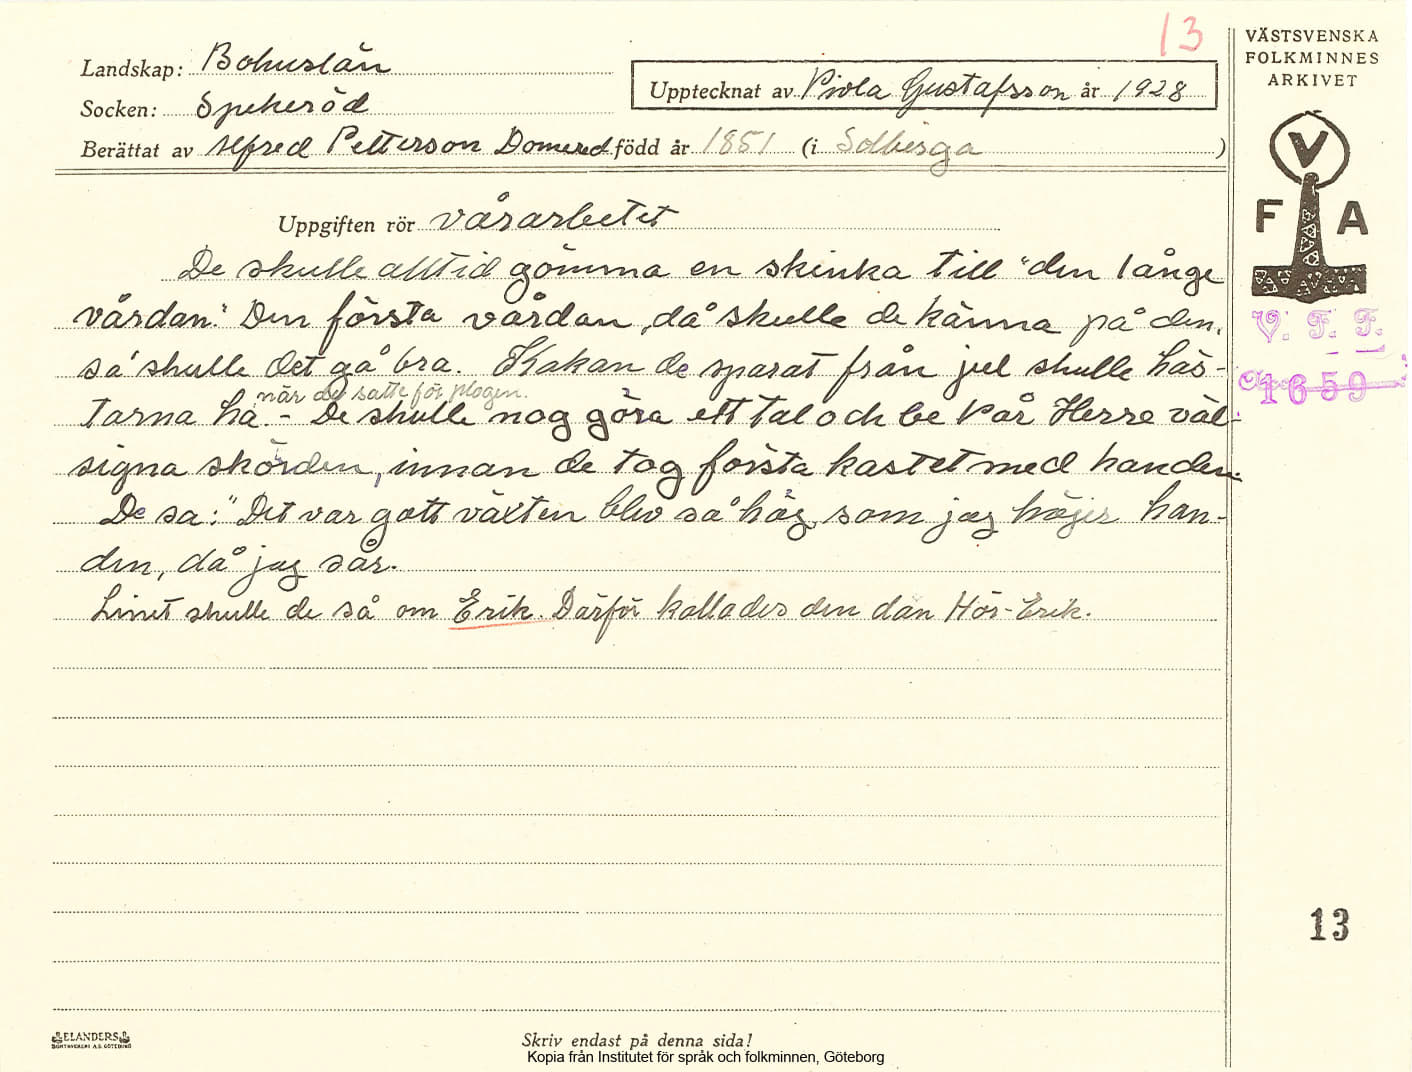 13
Landskap: Bohuslän
Socken: Spekeröd
Upptecknat av Viola Gustafsson år 1928
Berättat av Alfred Petterson Domered född år 1851 (i Solberga )
VÄSTSVENSKA
FOLKMINNES
ARKIVET
V
F A
Uppgiften rör vårarbetet
De skulle alltid gömma en skinka till "den långe
vårdan." Den första vårdan, då skulle de känna på den,
så skulle det gå bra. Kakan de sparat från jul skulle häs-
när de satte för plogen.
tarna ha. - De skulle nog göra ett tal och be Vår Herre väl-
signa skörden, innan de tog första kastet med handen.
De sa: "Det var gott växten blev så hög, som jag höjer han-
den, då jag sår.
Linet skulle de så om Erik. Därför kallades den dan Hör-Erik.
V. F. F.
1659
13
ELANDERS
BOKTRYCKERI A.B. GÖTEBORG
Skriv endast på denna sida!
Kopia från Institutet för språk och folkminnen, Göteborg